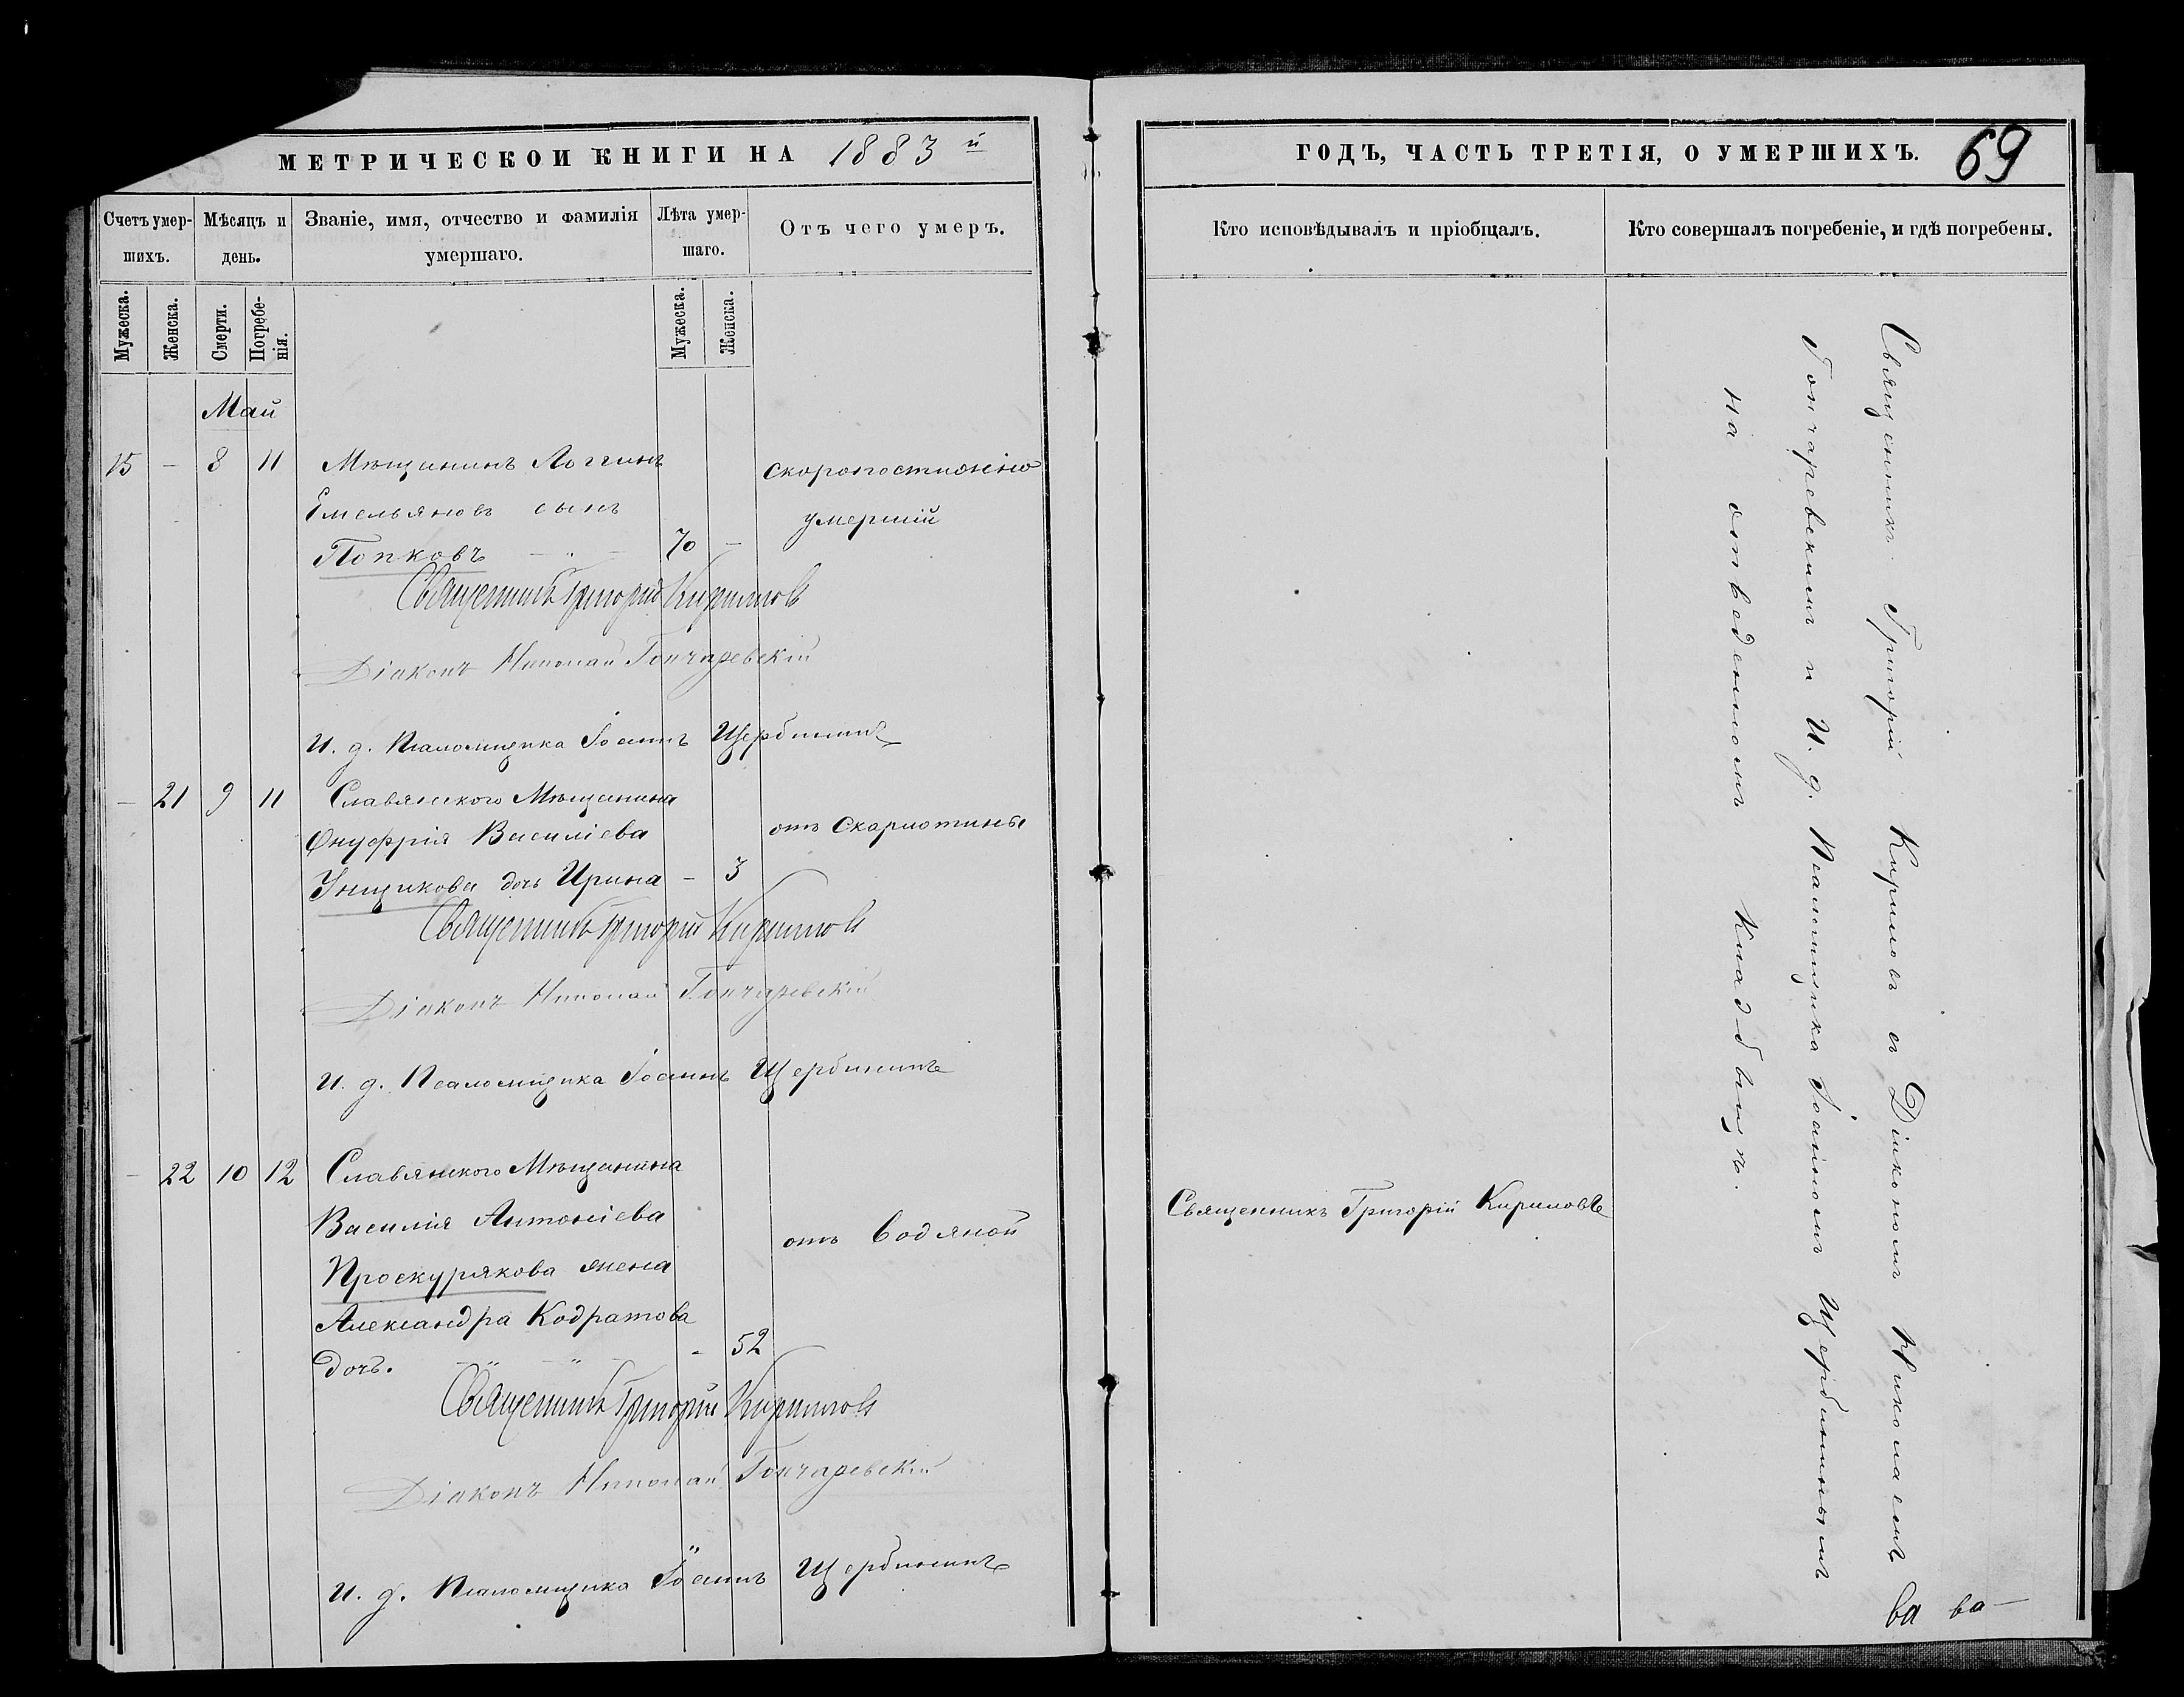 МЕТРИЧЕСКОЙ КНИГИ НА 1883й
Счетъ умершихъ.
Мѣсяцъ и день.
Званіе, имя, отчество и фамилія умершаго.
Лѣта умершаго.
Отъ чего умеръ.
Мужеска.
Женска.
Смерти.
Погребенія.
Мужеска.
Женска.
Май
15 – 8 11 Мѣщанинъ Логгинъ
скоропостижно
Емельяновъ сынъ
умершій
Попковъ – " – 70 –
Священникъ Григорій Кириловъ
Діаконъ Николай Гончаревскій
И. д. Псаломщика Іоаннъ Щербининъ
– 21 9 11 Славянского Мѣщанина
Онуфрія Василіева
отъ скарлотины
Унщикова дочь Ирина – 3
Священникъ Григорій Кириловъ
Діаконъ Николай Гончаревскій
И. д. Псаломщика Іоаннъ Щербининъ
– 22 10 12 Славянского Мѣщанина
Василія Антоніева
отъ водяной
Проскурякова жена
Александра Кодратова
дочь. – " – " – - 52
Священникъ Григорій Кириловъ
Діаконъ Николай Гончаревскій
И. д. Псаломщика Іоаннъ Щербининъ
ГОДЪ, ЧАСТЬ ТРЕТІЯ, О УМЕРШИХЪ.
69
Кто исповѣдывалъ и пріобщалъ.
Кто совершалъ погребеніе, и гдѣ погребены.
Священникъ Григорій Кириловъ
Священникъ Григорій Кириловъ съ Діакономъ Николаемъ
Гончаревскимъ и И. д. Псаломщика Іоанномъ Щербининымъ
на отведенномъ кладбищѣ.